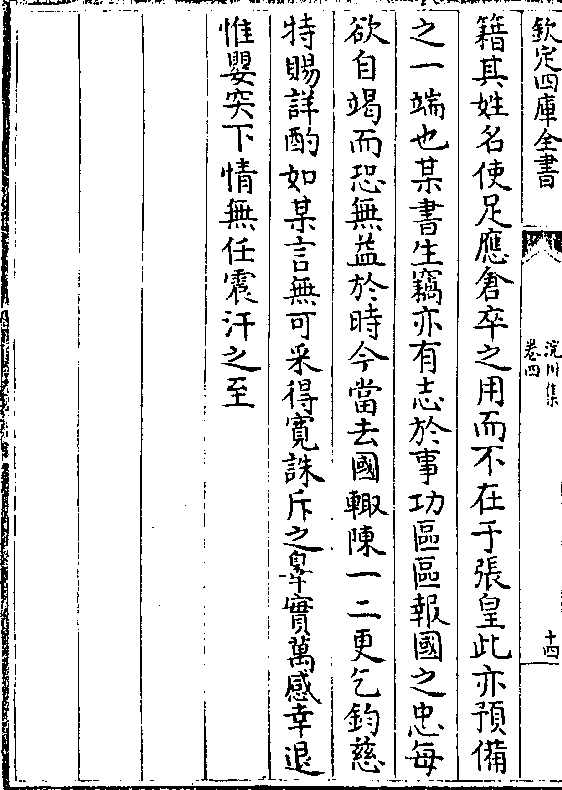 欽定四庫全書
浣川集
卷四
十四
籍其姓名使足應倉卒之用而不在于張皇此亦預備
之一端也某書生竊亦有志於事功區區報國之忠每
欲自竭而恐無益於時今當去國輙陳一二更乞鈞慈
特賜詳酌如某言無可采得寛誅斥之辠實萬感幸退
惟嬰突下情無任震汗之至